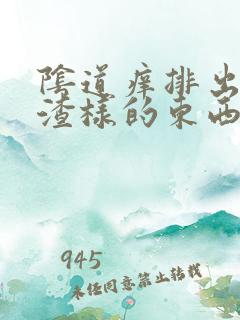 陰道痒排出
渣樣的東西
945
未经同意禁止转载